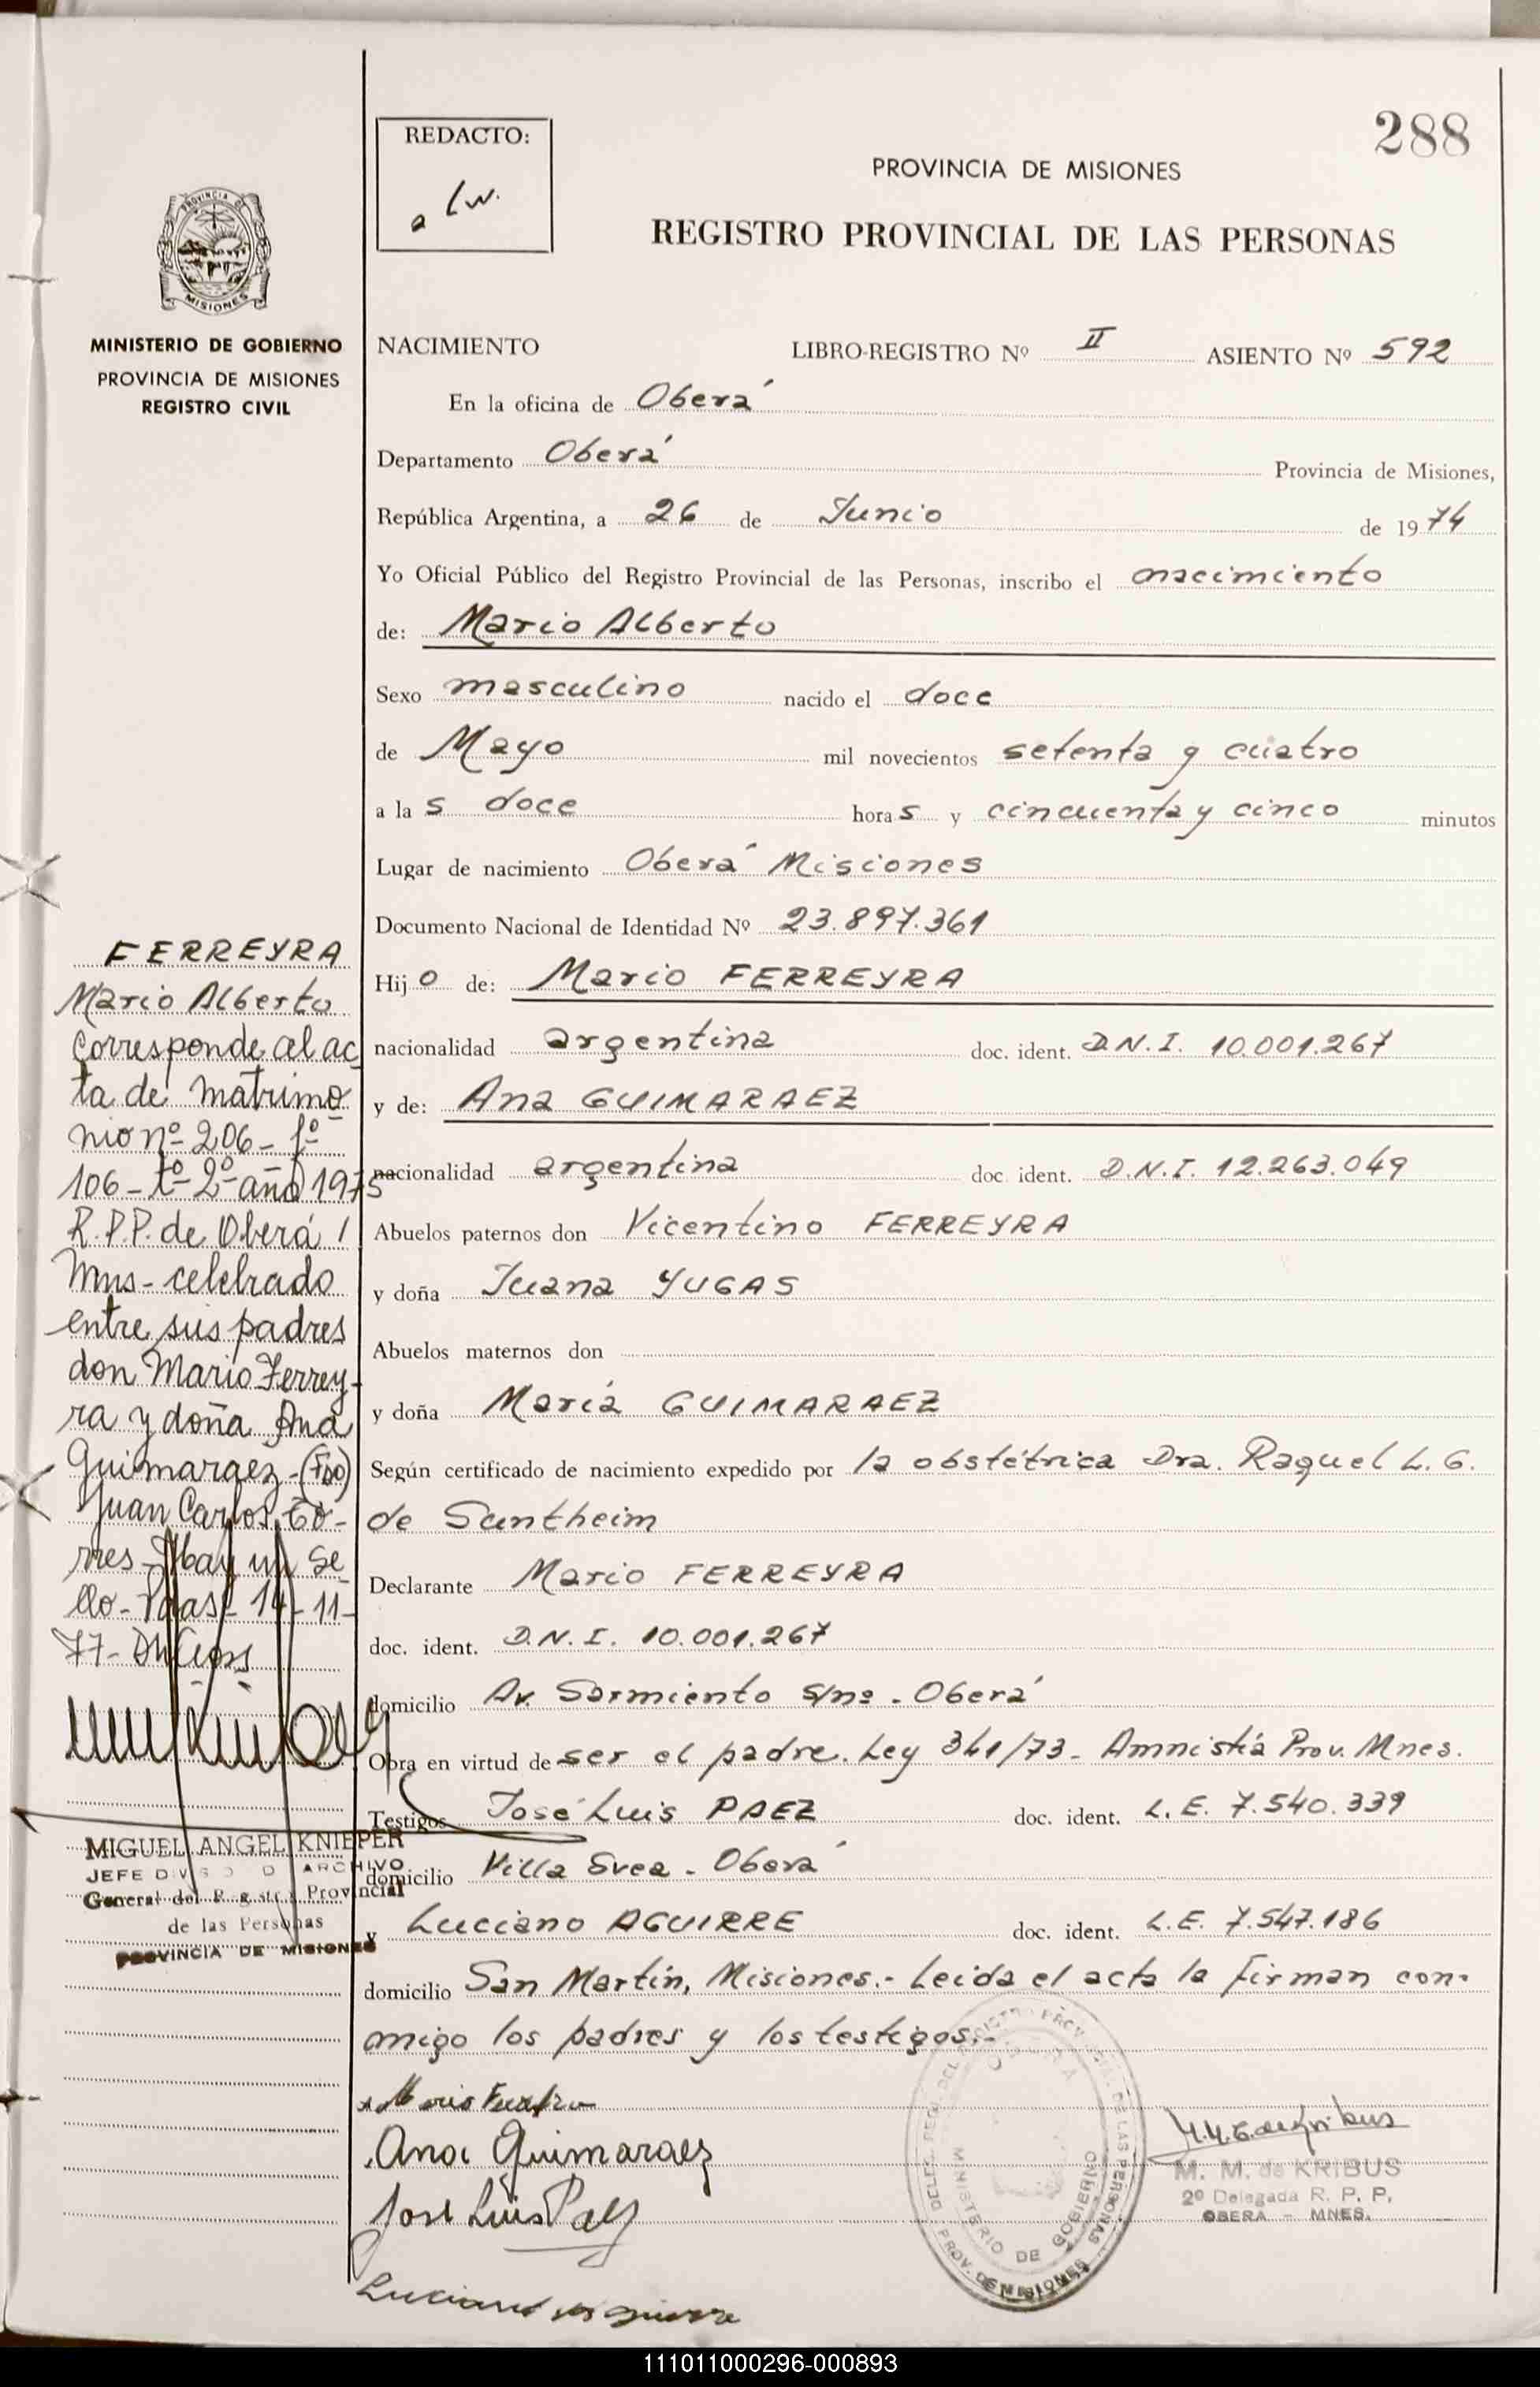 288
REDACTO:
PROVINCIA DE MISIONES
REGISTRO PROVINCIAL DE LAS PERSONAS
PROVINCIA DE
MISIONES
MINISTERIO DE GOBIERNO
PROVINCIA DE MISIONES
REGISTRO CIVIL
NACIMIENTO LIBRO-REGISTRO Nº II ASIENTO Nº 592
En la oficina de Oberá
Departamento Oberá Provincia de Misiones,
República Argentina, a 26 de Junio de 1974
Yo Oficial Público del Registro Provincial de las Personas, inscribo el nacimiento
de: Mario Alberto
Sexo masculino nacido el doce
de Mayo mil novecientos setenta y cuatro
a las doce horas y cincuenta y cinco minutos
Lugar de nacimiento Oberá Misiones
Documento Nacional de Identidad Nº 23.897.361
Hijo de: Mario FERREYRA
nacionalidad argentina doc. ident. D.N.I. 10.001.267
y de: Ana GUIMARAEZ
nacionalidad argentina doc. ident. D.N.I. 12.263.049
Abuelos paternos don Vicentino FERREYRA
y doña Juana YUGAS
Abuelos maternos don
y doña María GUIMARAEZ
Según certificado de nacimiento expedido por la obstétrica Dra. Raquel L. G.
de Suntheim
Declarante Mario FERREYRA
doc. ident. D.N.I. 10.001.267
domicilio Av. Sarmiento s/nº - Oberá
Obra en virtud de ser el padre. Ley 341/73 - Amnistía Prov. Mnes.
Testigos José Luis PAEZ doc. ident. L.E. 7.540.339
domicilio Villa Svea - Oberá
y Luciano AGUIRRE doc. ident. L.E. 7.547.186
domicilio San Martín, Misiones.- Leida el acta la firman con-
migo los padres y los testigos.-
Mario Ferreyra
Ana Guimaraez
José Luis Paez
Luciano Aguirre
FERREYRA
Mario Alberto
Corresponde al ac
ta de matrimo
nio nº 206 - fº
106 - tº 2º año 1975
R.P.P. de Oberá /
Mns - celebrado
entre sus padres
don Mario Ferrey-
ra y doña Ana
Guimaraez - (FDO)
Juan Carlos To-
rres - Hay un se
llo - Pdas - 14-11-
77-
MIGUEL ANGEL KNIEPER
JEFE DIVISO D ARCHIVO
General del Registro Provincial
de las Personas
PROVINCIA DE MISIONES
OBERA
MINISTERIO DE GOBIERNO
PROV. DE MISIONES
M. M. de KRIBUS
2º Delegada R. P. P.
OBERA - MNES.
111011000296-000893